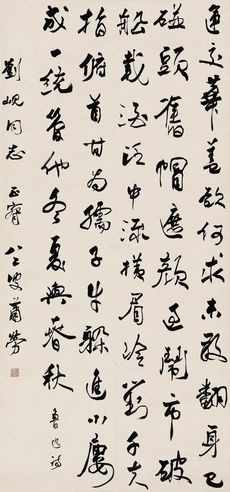 運交華蓋欲何求未敢翻身已
碰頭舊帽遮顏過鬧市破
船載酒泛中流橫眉冷對千夫
指俯首甘為孺子牛躲進小樓
成一統管他冬夏與春秋 魯迅詩
劉峴同志 正 八二叟蕭勞